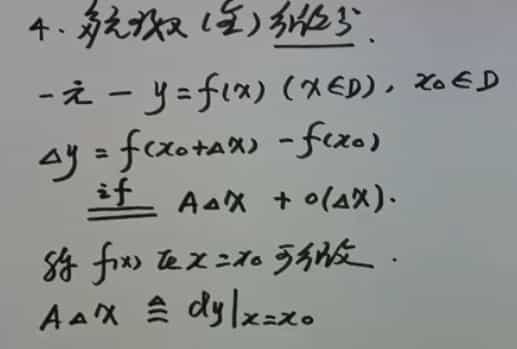 4. 多元函数(全)微分.
一元 — y=f(x) (x∈D), x₀∈D
Δy = f(x₀+Δx) - f(x₀)
if AΔx + o(Δx).
称 f(x) 在 x=x₀ 可微.
AΔx ≜ dy|x=x₀